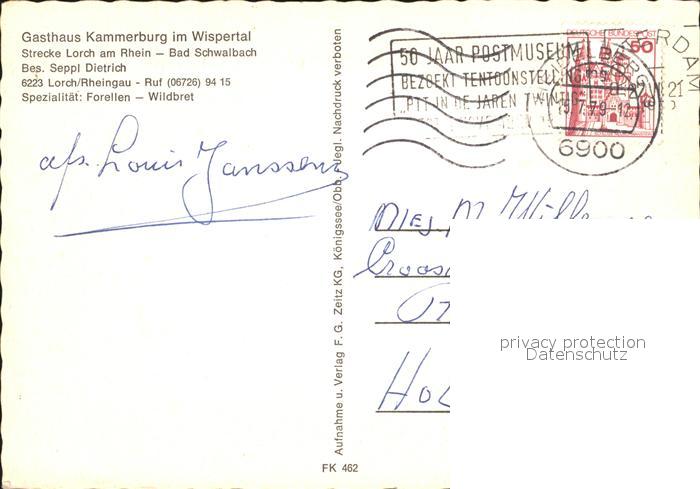 Gasthaus Kammerburg im Wispertal
Strecke Lorch am Rhein — Bad Schwalbach
Bes. Seppl Dietrich
6223 Lorch/Rheingau - Ruf (06726) 94 15
Spezialität: Forellen — Wildbret
afs. Louis Janssens
Aufnahme u. Verlag F. G. Zeitz KG, Königssee/Obb. Illegl. Nachdruck verboten
FK 462
50 JAAR POSTMUSEUM
BEZOEKT TENTOONSTELLING
"PTT IN DE JAREN TWINTIG"
DEUTSCHE BUNDESPOST
50
6900
Mej. M.
HOL
privacy protection
Datenschutz